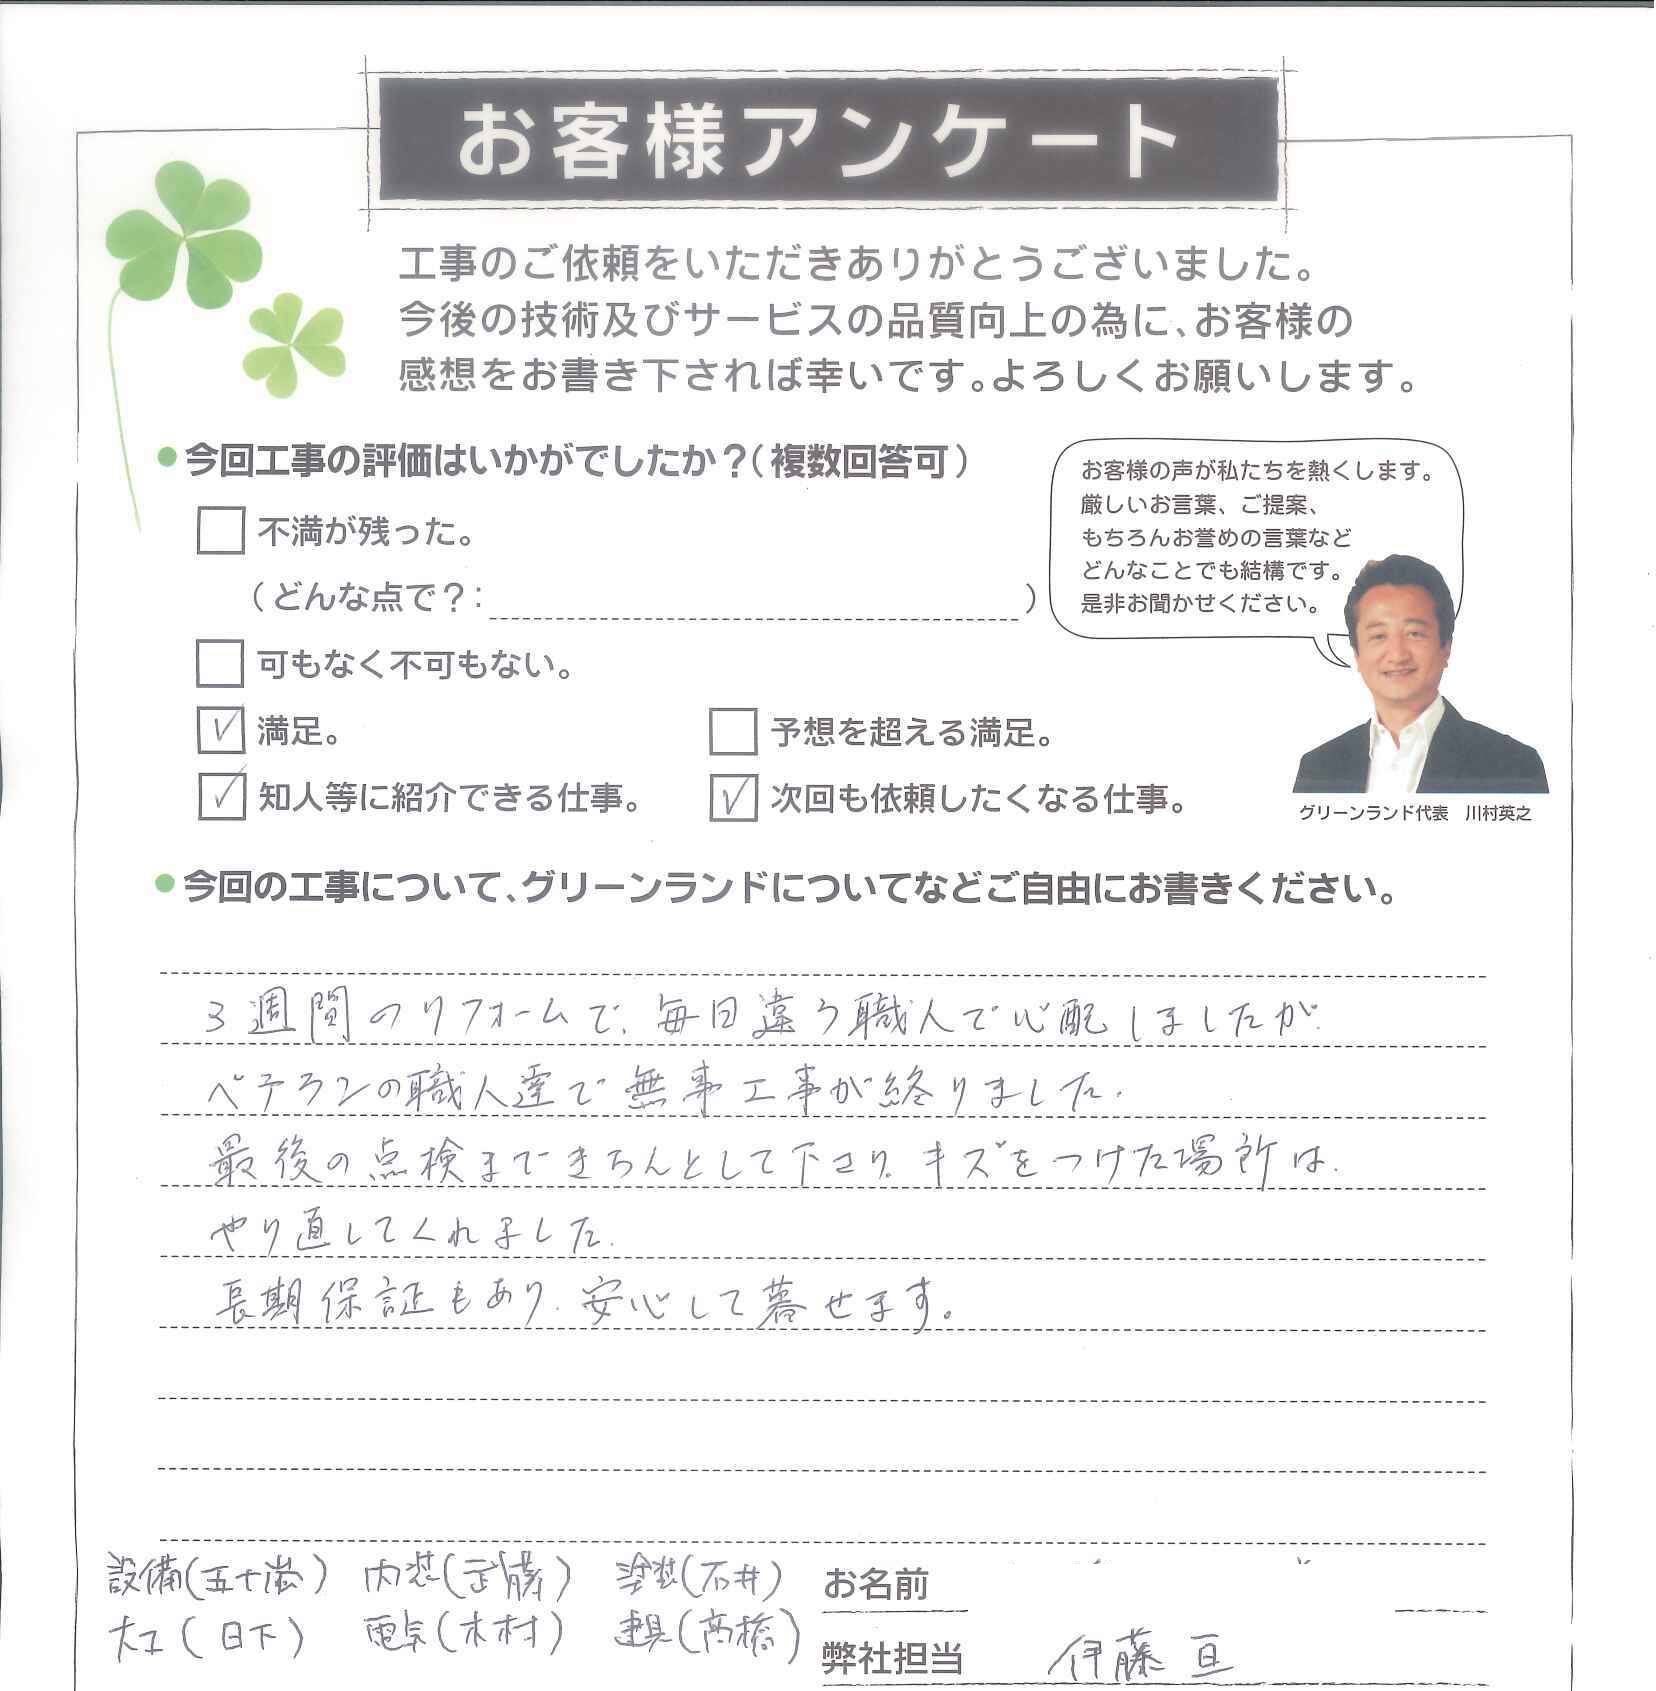 お客様アンケート
工事のご依頼をいただきありがとうございました。
今後の技術及びサービスの品質向上の為に、お客様の
感想をお書き下されば幸いです。よろしくお願いします。
●今回工事の評価はいかがでしたか?(複数回答可)
不満が残った。
(どんな点で?: )
可もなく不可もない。
満足。
予想を超える満足。
知人等に紹介できる仕事。
次回も依頼したくなる仕事。
お客様の声が私たちを熱くします。
厳しいお言葉、ご提案、
もちろんお誉めの言葉など
どんなことでも結構です。
是非お聞かせください。
グリーンランド代表 川村英之
●今回の工事について、グリーンランドについてなどご自由にお書きください。
3週間のリフォームで、毎日違う職人で心配しましたが、
ベテランの職人達で無事工事が終りました。
最後の点検まできちんとして下さり、キズをつけた場所は、
やり直してくれました。
長期保証もあり、安心して暮せます。
設備(五十嵐) 内装(武藤) 塗装(石井)
大工(日下) 電気(木村) 建具(高橋)
お名前
弊社担当 伊藤 亘